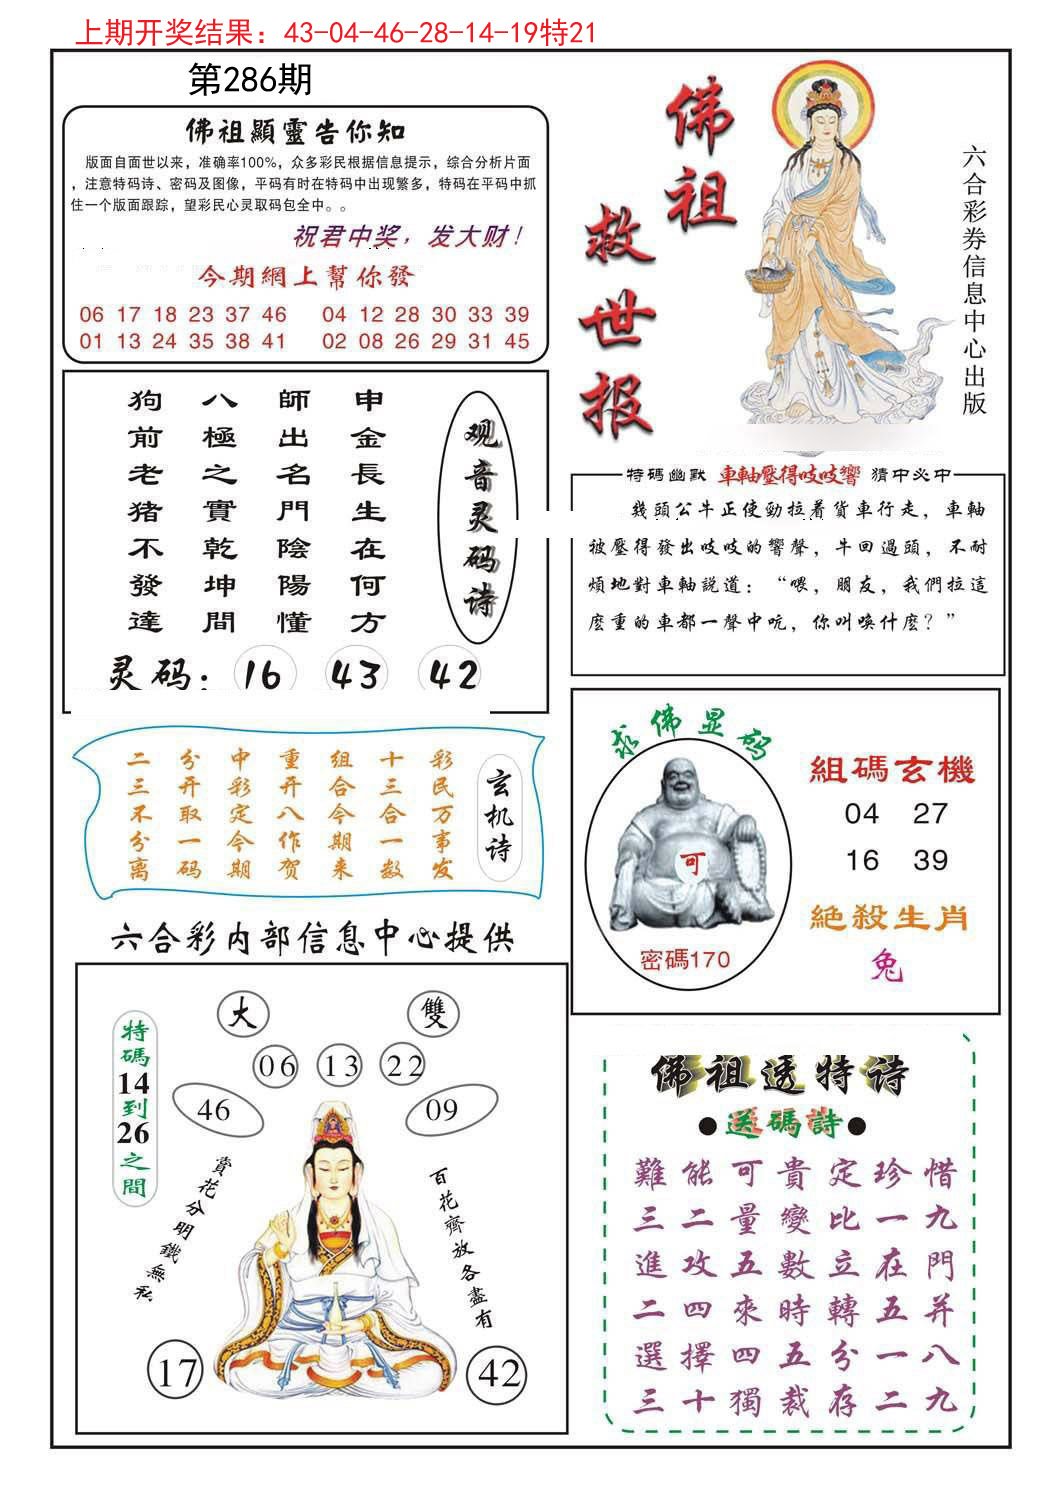 上期开奖结果：43-04-46-28-14-19特21
第286期
佛祖顯靈告你知
版面自面世以来，准确率100%，众多彩民根据信息提示，综合分析片面
，注意特码诗、密码及图像，平码有时在特码中出现繁多，特码在平码中抓
住一个版面跟踪，望彩民心灵取码包全中。。
祝君中奖，发大财！
今期網上幫你發
06 17 18 23 37 46 04 12 28 30 33 39
01 13 24 35 38 41 02 08 26 29 31 45
佛祖
救世报
六合彩券信息中心出版
观音灵码诗
申金長生在何方
師出名門陰陽懂
八極之實乾坤間
狗前老猪不發達
灵码：16 43 42
特碼幽默 車軸壓得吱吱響 猜中必中
幾頭公牛正使勁拉着貨車行走，車軸
被壓得發出吱吱的響聲，牛回過頭，不耐
煩地對車軸説道：“喂，朋友，我們拉這
麽重的車都一聲中吭，你叫唤什麽？”
玄机诗
彩民万事发
十三合一数
组合今期来
重开八作贺
中彩定今期
分开取一码
二三不分离
求佛显码
可
密碼170
組碼玄機
04 27
16 39
絕殺生肖
兔
六合彩内部信息中心提供
大 雙
06 13 22
46 09
特碼14到26之間
賞花分明鐵無私
百花齊放各盡有
17 42
佛祖透特诗
●送碼詩●
難能可貴定珍惜
三二量變比一九
進攻五數立在門
二四來時轉五并
選擇四五分一八
三十獨裁存二九